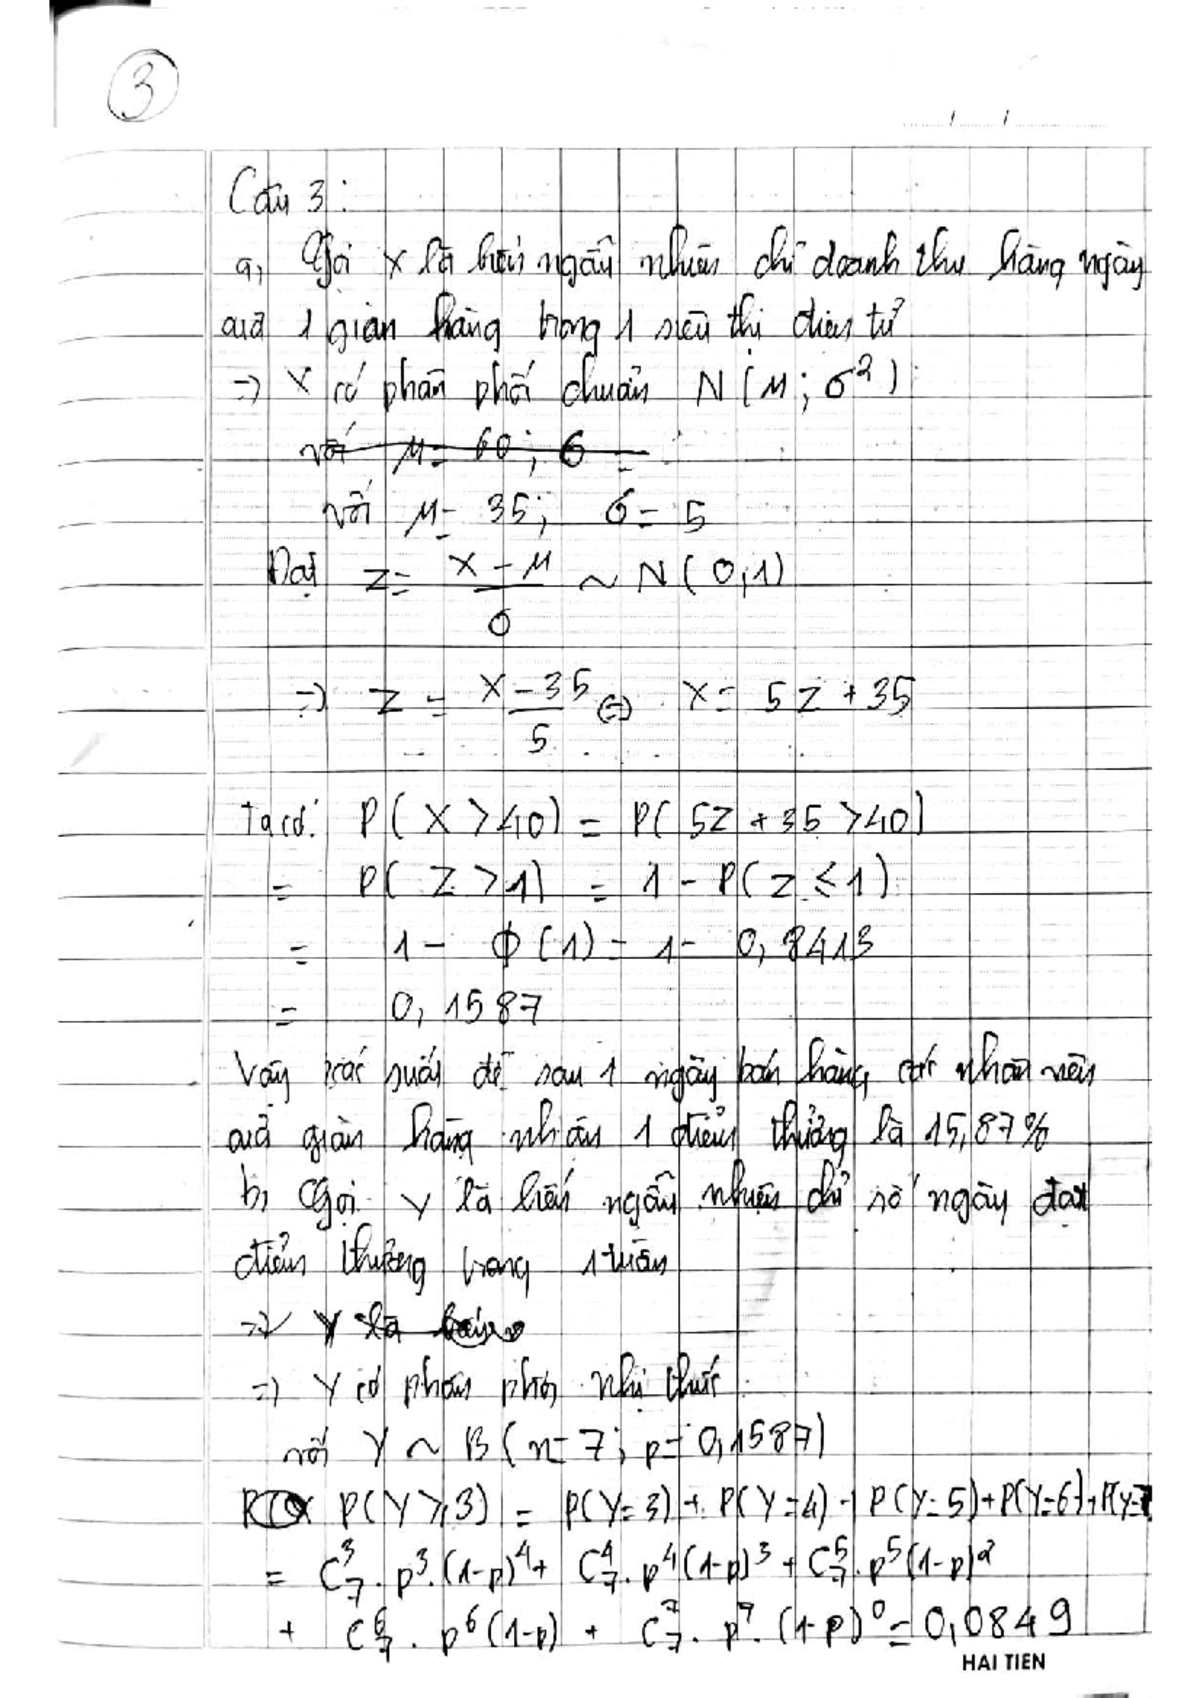 3
Câu 3:
a, Gọi X là biến ngẫu nhiên chỉ doanh thu hàng ngày
của 1 gian hàng trong 1 siêu thị điện tử
=> X có phân phối chuẩn N(μ; σ²)
với μ= 60; σ =
với μ= 35; σ= 5
Đặt Z= X-μ/σ ~ N(0,1)
=> Z = X-35/5 <=> X= 5Z+35
Ta có: P(X>40) = P(5Z+35>40)
= P(Z>1) = 1-P(Z≤1)
= 1- Φ(1)= 1- 0,8413
= 0,1587
Vậy xác suất để sau 1 ngày bán hàng các nhân viên
của gian hàng nhận 1 điểm thưởng là 15,87%
b, Gọi Y là biến ngẫu nhiên chỉ số ngày đạt
điểm thưởng trong 1 tuần
=> Y là biến
=> Y có phân phối nhị thức
với Y ~ B(n=7; p=0,1587)
P(Y≥3) = P(Y=3)+ P(Y=4)+ P(Y=5)+P(Y=6)+P(Y=7
= C₇³. p³.(1-p)⁴+ C₇⁴. p⁴(1-p)³ + C₇⁵. p⁵(1-p)²
+ C₇⁶. p⁶(1-p) + C₇⁷. p⁷. (1-p)⁰ = 0,0849
HAI TIEN